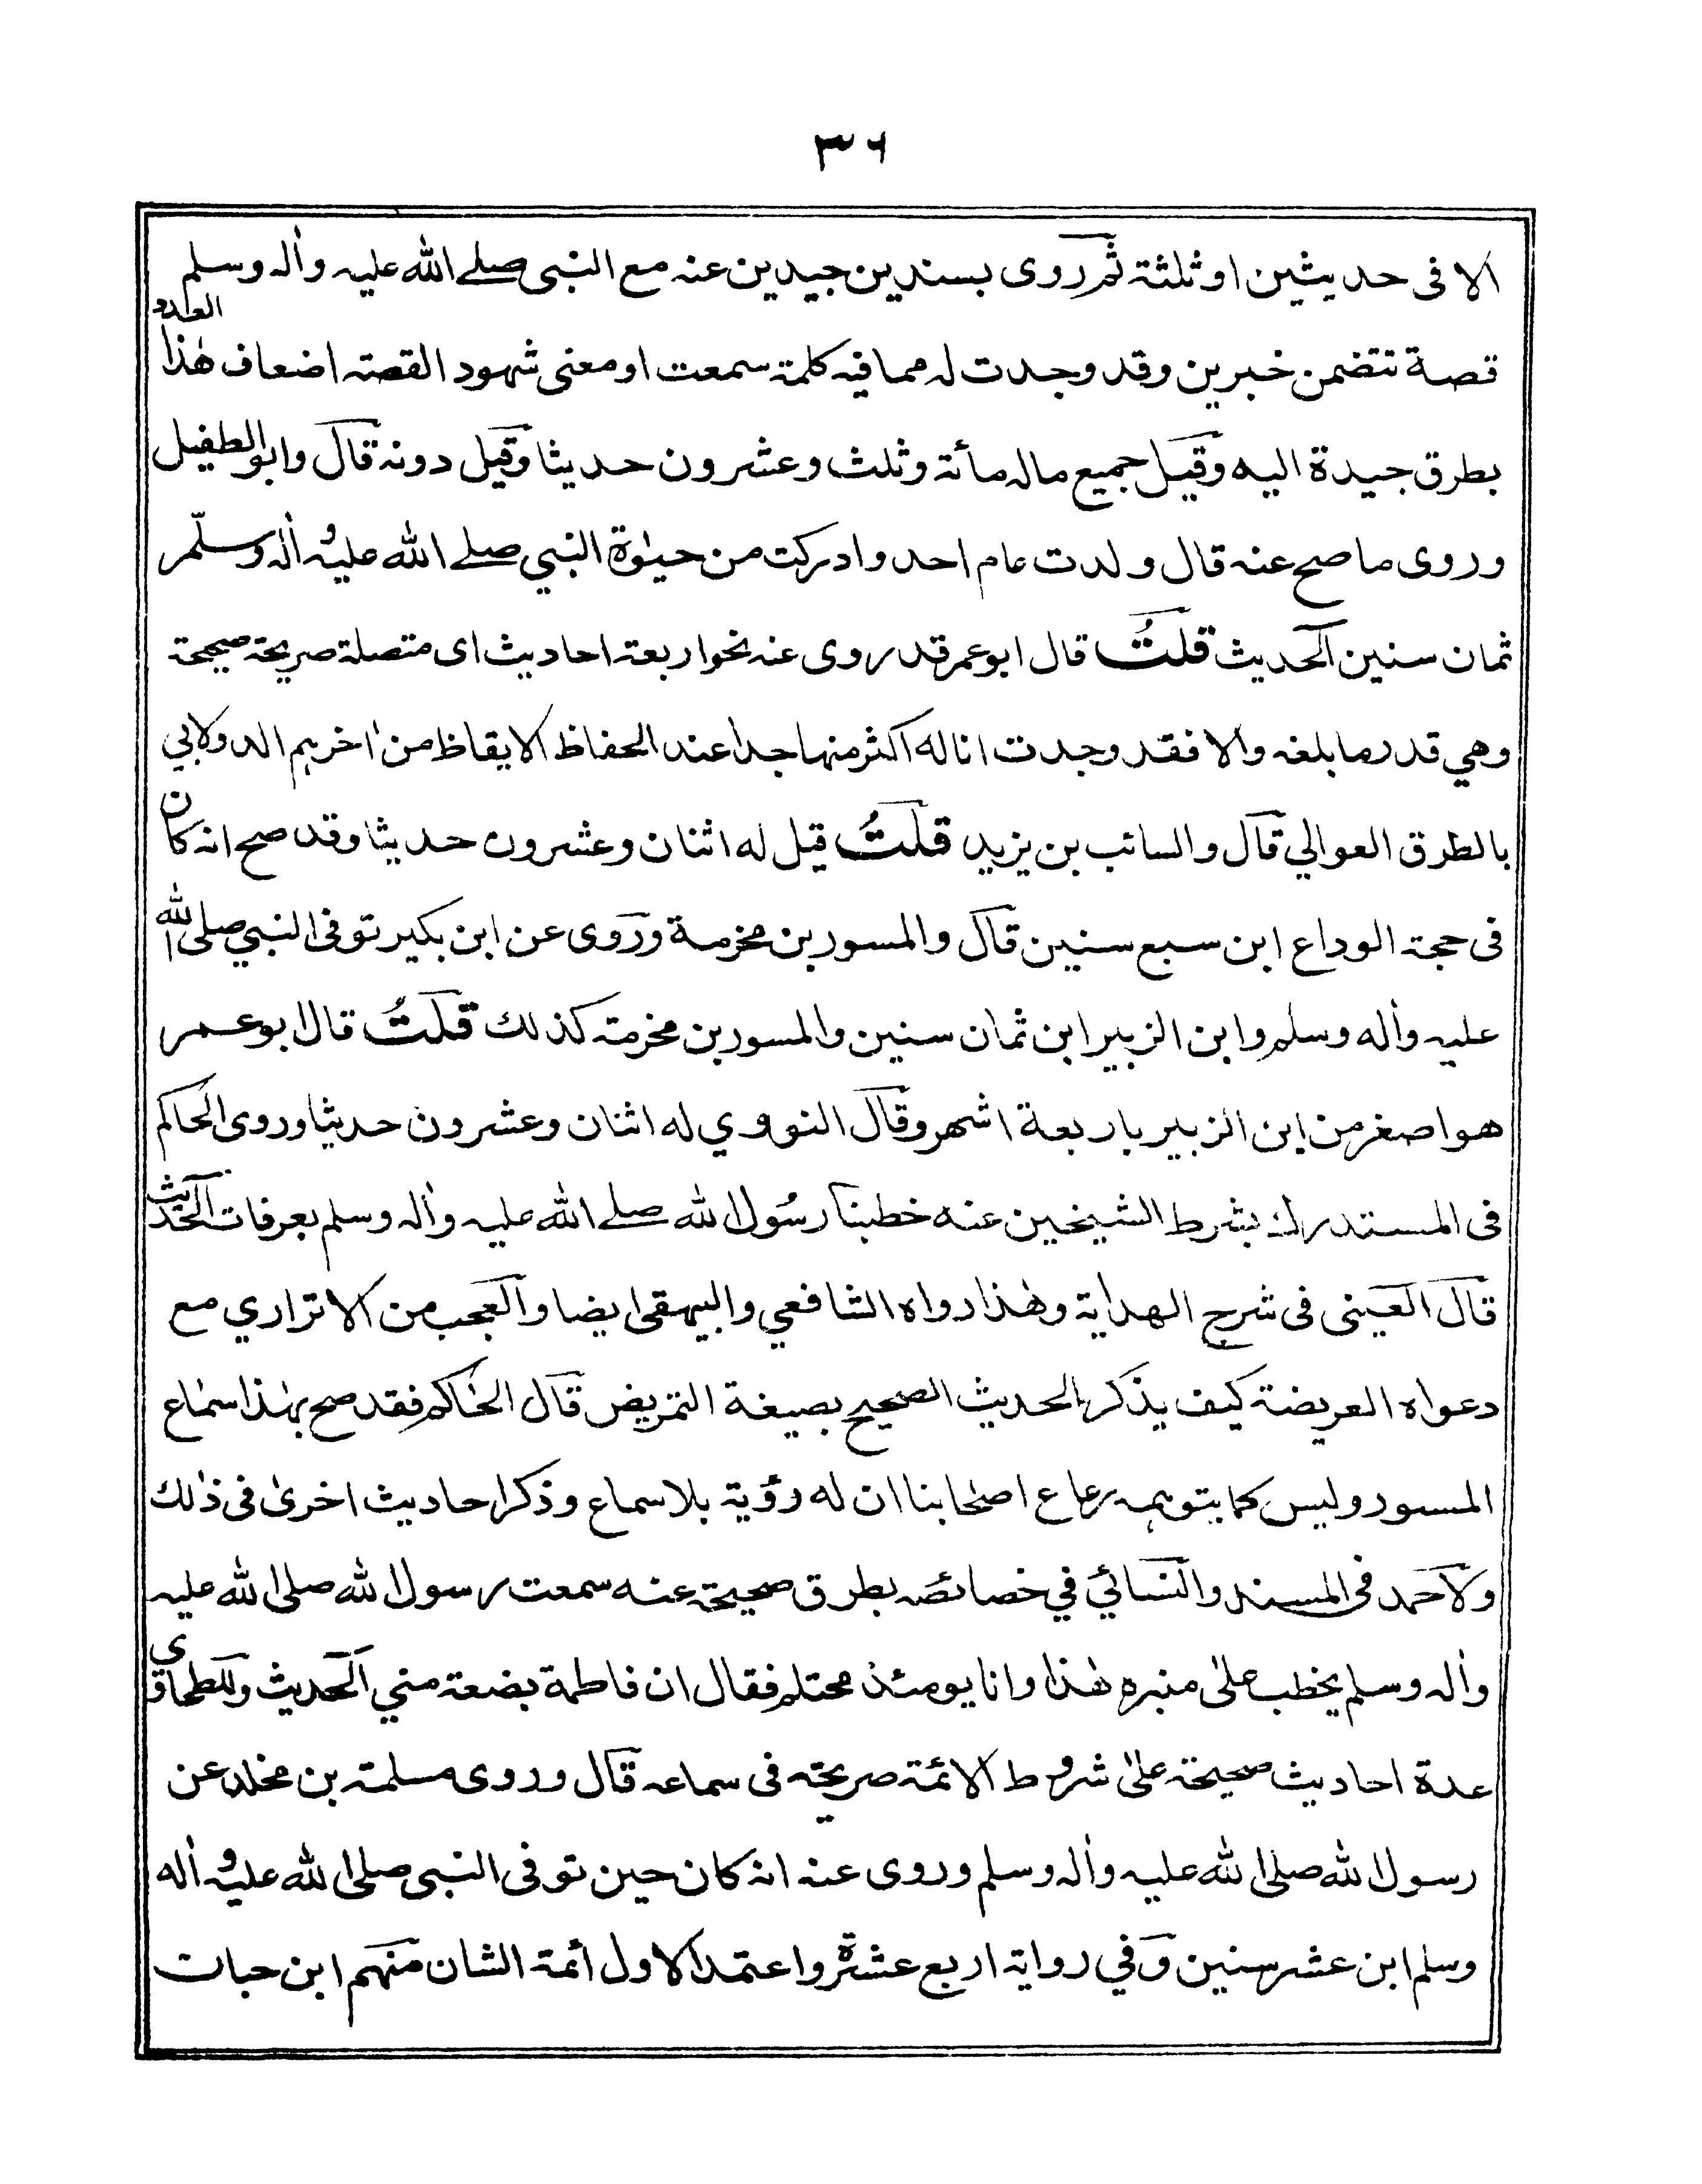 ٣٦
الا فى حديثين او ثلثة ثم روى بسندين جيدين عنه مع النبى صلے الله عليه واٰله وسلم
قصة تتضمن خبرين وقد وجدت له مما فيه كلمة سمعت او معنى شهود القصة اضعاف هٰذا العدد
بطرق جيدة اليه وقيل جميع ماله مأئة وثلث وعشرون حديثا وقيل دونه قال وابو الطفيل
وروى ما صح عنه قال ولدت عام احد وادركت من حيٰوة النبي صلے الله عليه واٰله وسلّم
ثمان سنين الحديث قلتُ قال ابو عمر قد روى عنه نحوا ربعة احاديث اى متصلة صريحة صحيحة
وهي قدر ما بلغه والا فقد وجدت انا له اكثر منها جدا عند الحفاظ الايقاظ من اٰخرهم الدولابي
بالطرق العوالي قال والسائب بن يزيد قلتُ قيل له اثنان وعشرون حديثا وقد صح انه كان
فى حجة الوداع ابن سبع سنين قال والمسور بن مخرمة وروى عن ابن بكير توفى النبي صلى الله
عليه واٰله وسلم وابن الزبير ابن ثمان سنين والمسور بن مخرمة كذلك قلتُ قال ابو عمر
هو اصغر من ابن الزبير باربعة اشهر وقال النووي له اثنان وعشرون حديثا وروى الحاكم
فى المستدرك بشرط الشيخين عنه خطبنا رسُول الله صلے الله عليه واٰله وسلم بعرفات الحديث
قال العينى فى شرح الهداية وهٰذا رواه الشافعي والبيهقى ايضا والعجب من الاتراري مع
دعواه العريضة كيف يذكر الحديث الصحيح بصيغة التمريض قال الحٰاكم فقد صح بهٰذا سماع
المسور وليس كما يتوهمه رعاع اصحٰابنا ان له رؤية بلا سماع وذكر احاديث اخرىٰ فى ذٰلك
ولاحمد فى المسند والنسائي في خصائصه بطرق صحيحة عنه سمعت رسول الله صلى الله عليه
واٰله وسلم يخطب علىٰ منبره هٰذا وانا يومئذ محتلم فقال ان فاطمة بضعة مني الحديث وللطحاوى
عدة احاديث صحيحة علىٰ شروط الائمة صريحة فى سماعه قال وروى مسلمة بن مخلد عن
رسول الله صلى الله عليه واٰله وسلم وروى عنه انه كان حين توفى النبى صلى الله عليه واٰله
وسلم ابن عشر سنين وفي رواية اربع عشرة واعتمد الاول أئمة الشان منهم ابن حبان